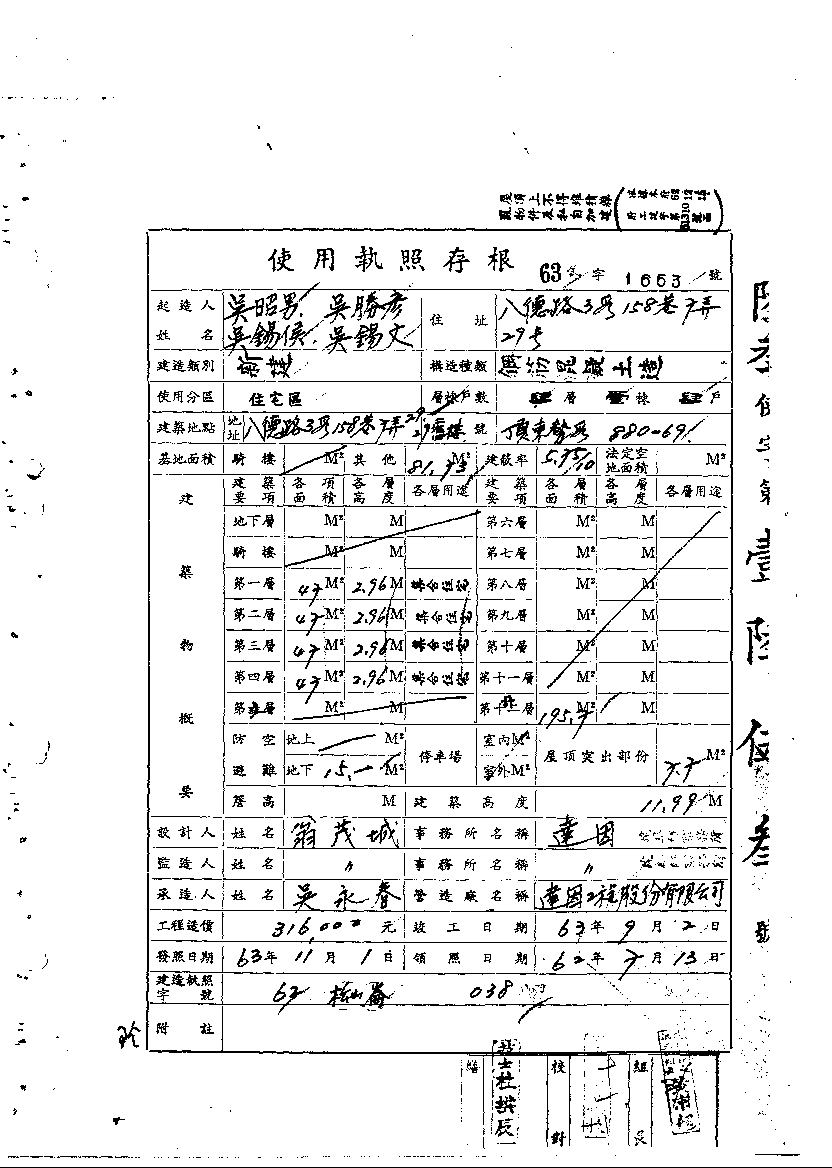 屋頂上不得堆積與
物件及私自加建
使用執照存根 63 字 1653 號
起造人姓名 吳昭男、吳勝彥 吳錫侯、吳錫文
住址 八德路3段158巷7弄29号
建造類別 新建 構造種類 鋼筋混凝土造
使用分區 住宅區 層棟戶數 層 棟 戶
建築地點 地址 八德路3段158巷7弄 號 頂東勢段 880-69
基地面積 騎樓 M² 其他 81.73 M² 建蔽率 5.75/10 法定空地面積 M²
建築物概要
建築要項 各項面積 各層高度 各層用途 建築要項 各層面積 各層高度 各層用途
地下層 M² M 第六層 M² M
騎樓 M² M 第七層 M² M
第一層 47 M² 2.96 M 集合住宅 第八層 M² M
第二層 47 M² 2.96 M 集合住宅 第九層 M² M
第三層 47 M² 2.96 M 集合住宅 第十層 M² M
第四層 47 M² 2.96 M 集合住宅 第十一層 M² M
第 層 M² M 195.7 M² M
防空避難 地上 M² 停車場 室內 M² 屋頂突出部份 7.7 M²
地下 15.- M² 室外 M²
簷高 M 建築高度 11.99 M
設計人 姓名 翁茂城 事務所名稱 達因
監造人 姓名 〃 事務所名稱 〃
承造人 姓名 吳永春 營造廠名稱 達因工程股份有限公司
工程造價 316,000 元 竣工日期 63年9月2日
發照日期 63年11月1日 領照日期 62年7月13日
建造執照字號 62 松山 038
附註
使字第壹陸 叁號
校對
組長